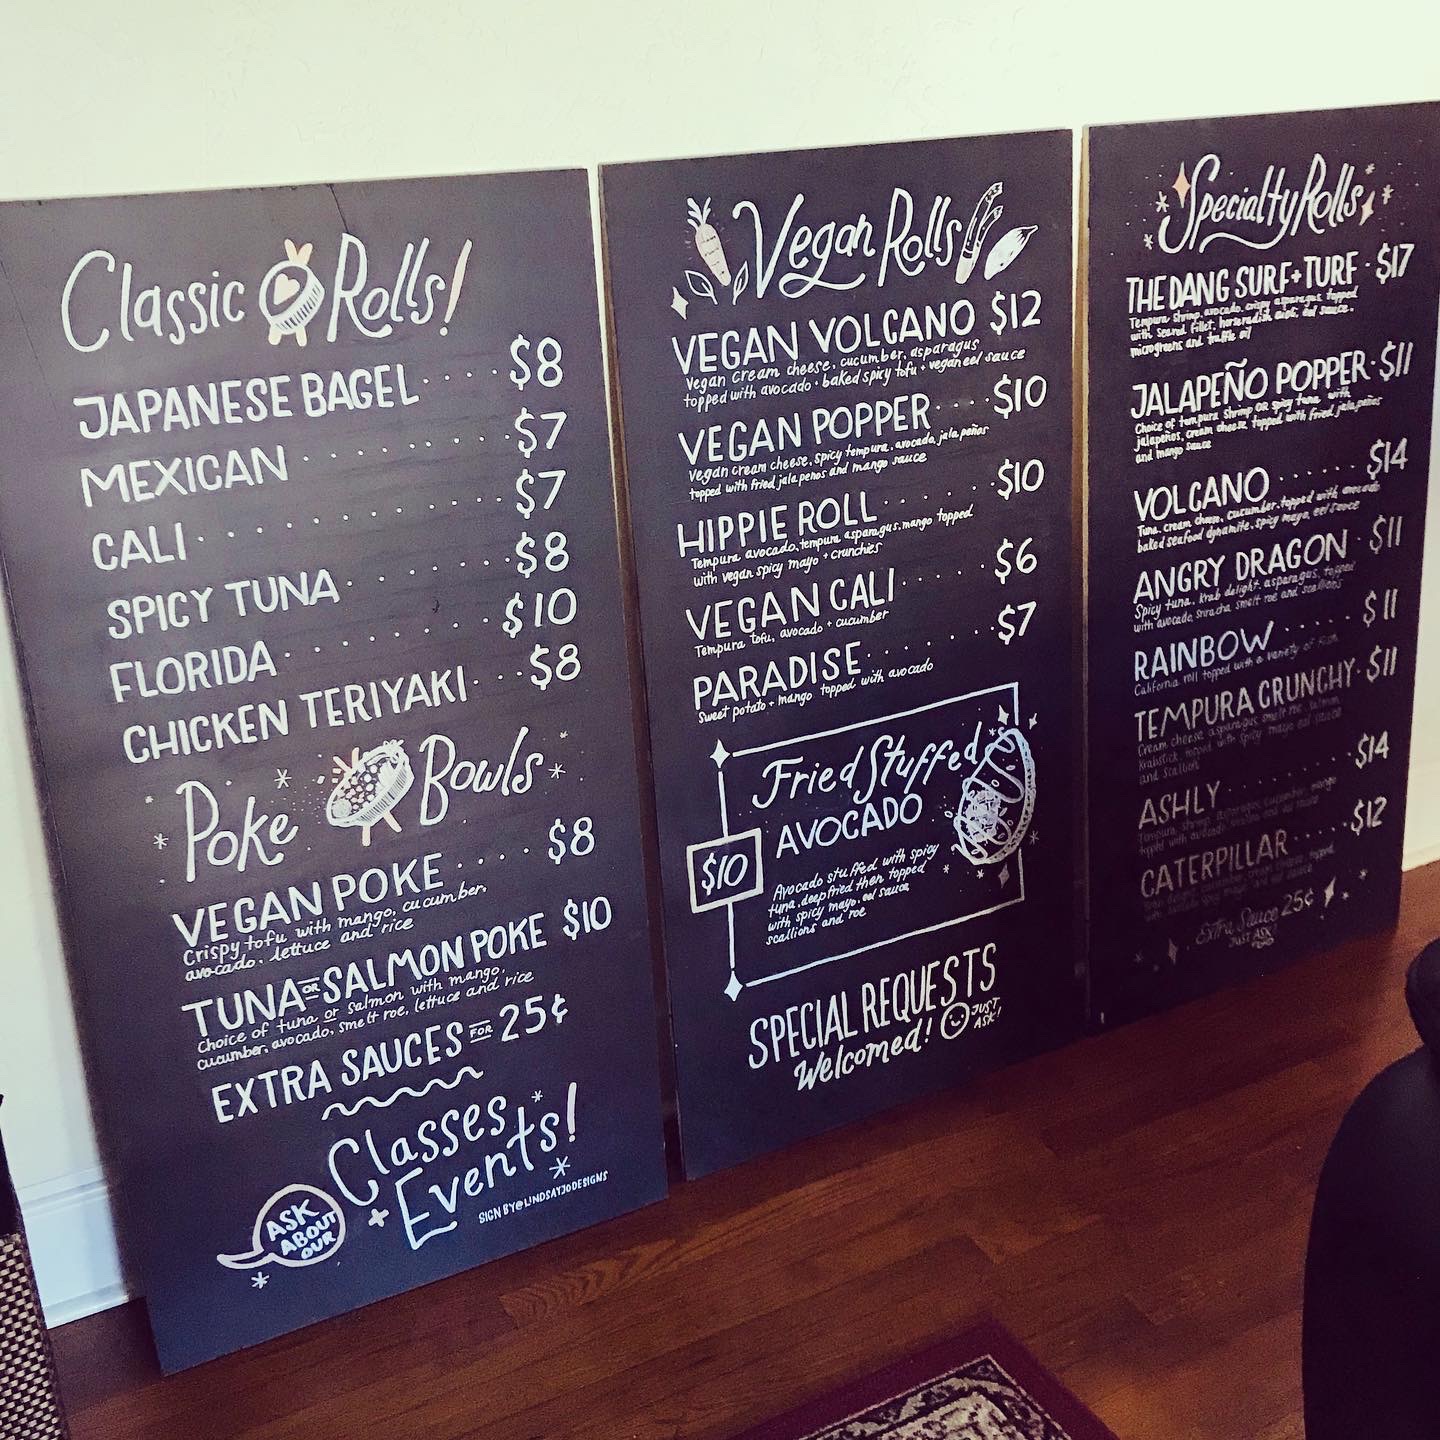 Classic Rolls!
JAPANESE BAGEL .... $8
MEXICAN ........ $7
CALI .......... $7
SPICY TUNA ...... $8
FLORIDA ........ $10
CHICKEN TERIYAKI ... $8
Poke Bowls
VEGAN POKE .... $8
Crispy tofu with mango, cucumber,
avocado, lettuce and rice
TUNA OR SALMON POKE $10
Choice of tuna or salmon with mango,
cucumber, avocado, smelt roe, lettuce and rice
EXTRA SAUCES FOR 25¢
ASK
ABOUT
OUR
Classes
+ Events!
SIGN BY @LINDSAYJODESIGNS
Vegan Rolls
VEGAN VOLCANO $12
Vegan cream cheese, cucumber, asparagus
topped with avocado + baked spicy tofu + vegan eel sauce
VEGAN POPPER .... $10
Vegan cream cheese, spicy tempura, avocado, jalapeños
topped with fried jalapenos and mango sauce
HIPPIE ROLL ...... $10
Tempura avocado, tempura asparagus, mango topped
with vegan spicy mayo + crunchies
VEGAN CALI ...... $6
Tempura tofu, avocado + cucumber
PARADISE ....... $7
Sweet potato + mango topped with avocado
Fried Stuffed
AVOCADO
$10
Avocado stuffed with spicy
tuna, deep fried then topped
with spicy mayo, eel sauce,
scallions and roe
SPECIAL REQUESTS
Welcomed!
JUST
ASK!
Specialty Rolls
THE DANG SURF + TURF · $17
Tempura shrimp, avocado, crispy asparagus, topped
with seared fillet, horseradish aioli, eel sauce,
microgreens and truffle oil
JALAPEÑO POPPER · $11
Choice of tempura shrimp OR spicy tuna, with
jalapeños, cream cheese topped with fried jalapeños
and mango sauce
VOLCANO ...... $14
Tuna, cream cheese, cucumber, topped with avocado
baked seafood dynamite, spicy mayo, eel sauce
ANGRY DRAGON · $11
Spicy tuna, krab delight, asparagus, topped
with avocado, sriracha, smelt roe and scallions
RAINBOW ...... $11
California roll topped with a variety of
TEMPURA CRUNCHY · $11
Cream cheese, asparagus, smelt roe, salmon,
krabstick, topped with spicy mayo, eel sauce
and scallions
ASHLY ....... $14
Tempura shrimp, asparagus, cucumber, mango
topped with avocado
CATERPILLAR ..... $12
Extra Sauce 25¢
JUST ASK!